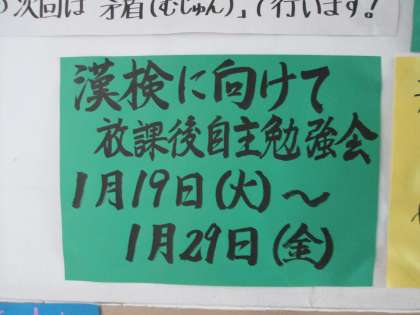 次回は「矛盾(むじゅん)」で行います!
漢検に向けて
放課後自主勉強会
1月19日(火)～
1月29日(金)